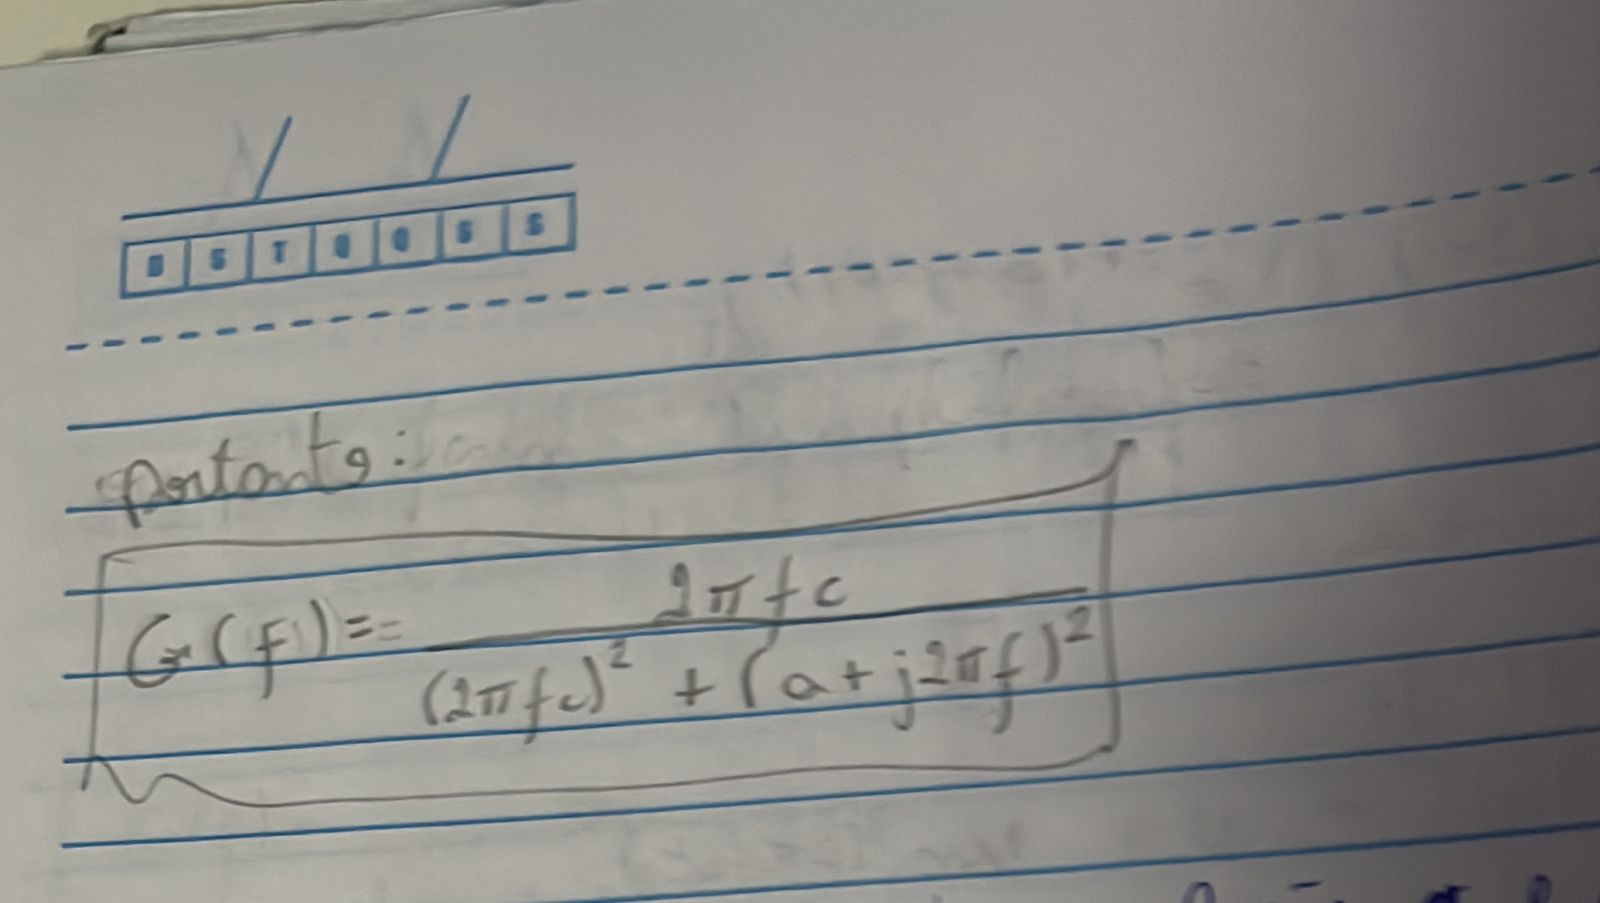 / /
D S T Q Q S S
portanto:
G(f) = \frac{2πfc}{(2πfc)^2 + (a + j2πf)^2}